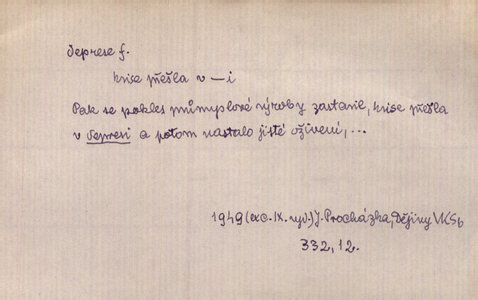 deprese f.
krise přešla v —i
Pak se pokles průmyslové výroby zastavil, krise přešla
v depresi a potom nastalo jisté oživení,...
1949 (a c. IX. vyd.) J. Procházka, Dějiny VKSb
332, 12.